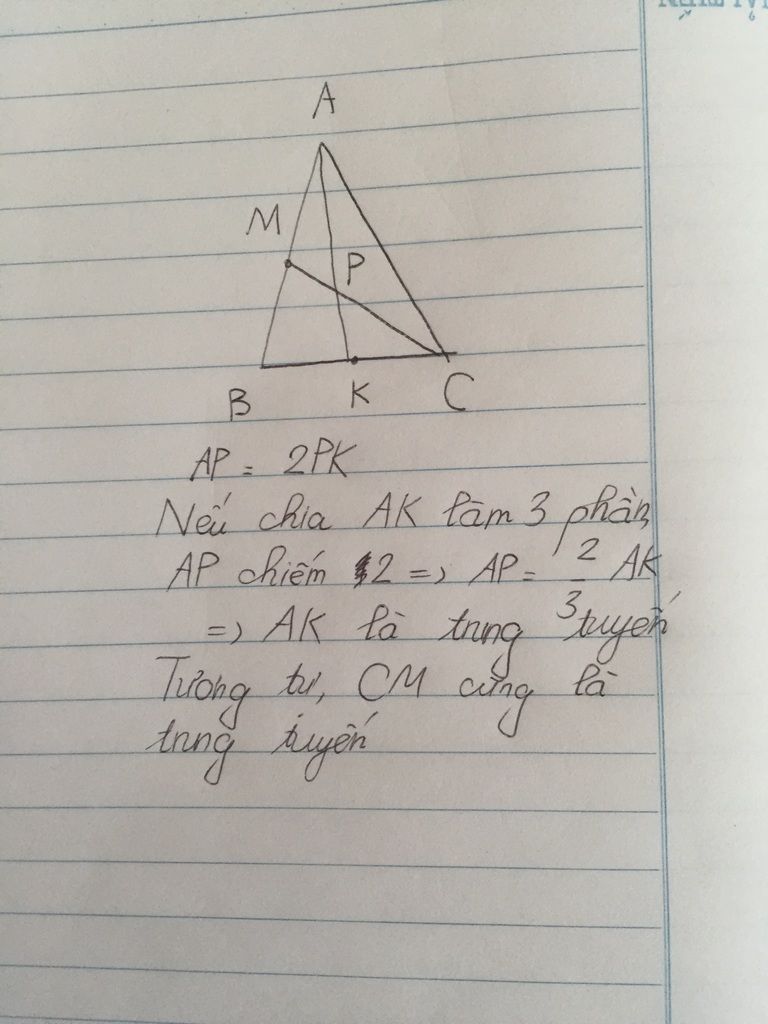 A
M
P
B
K
C
AP = 2PK
Nếu chia AK làm 3 phần,
AP chiếm 2 => AP = 2/3 AK
=> AK là trung tuyến
Tương tự, CM cũng là
trung tuyến